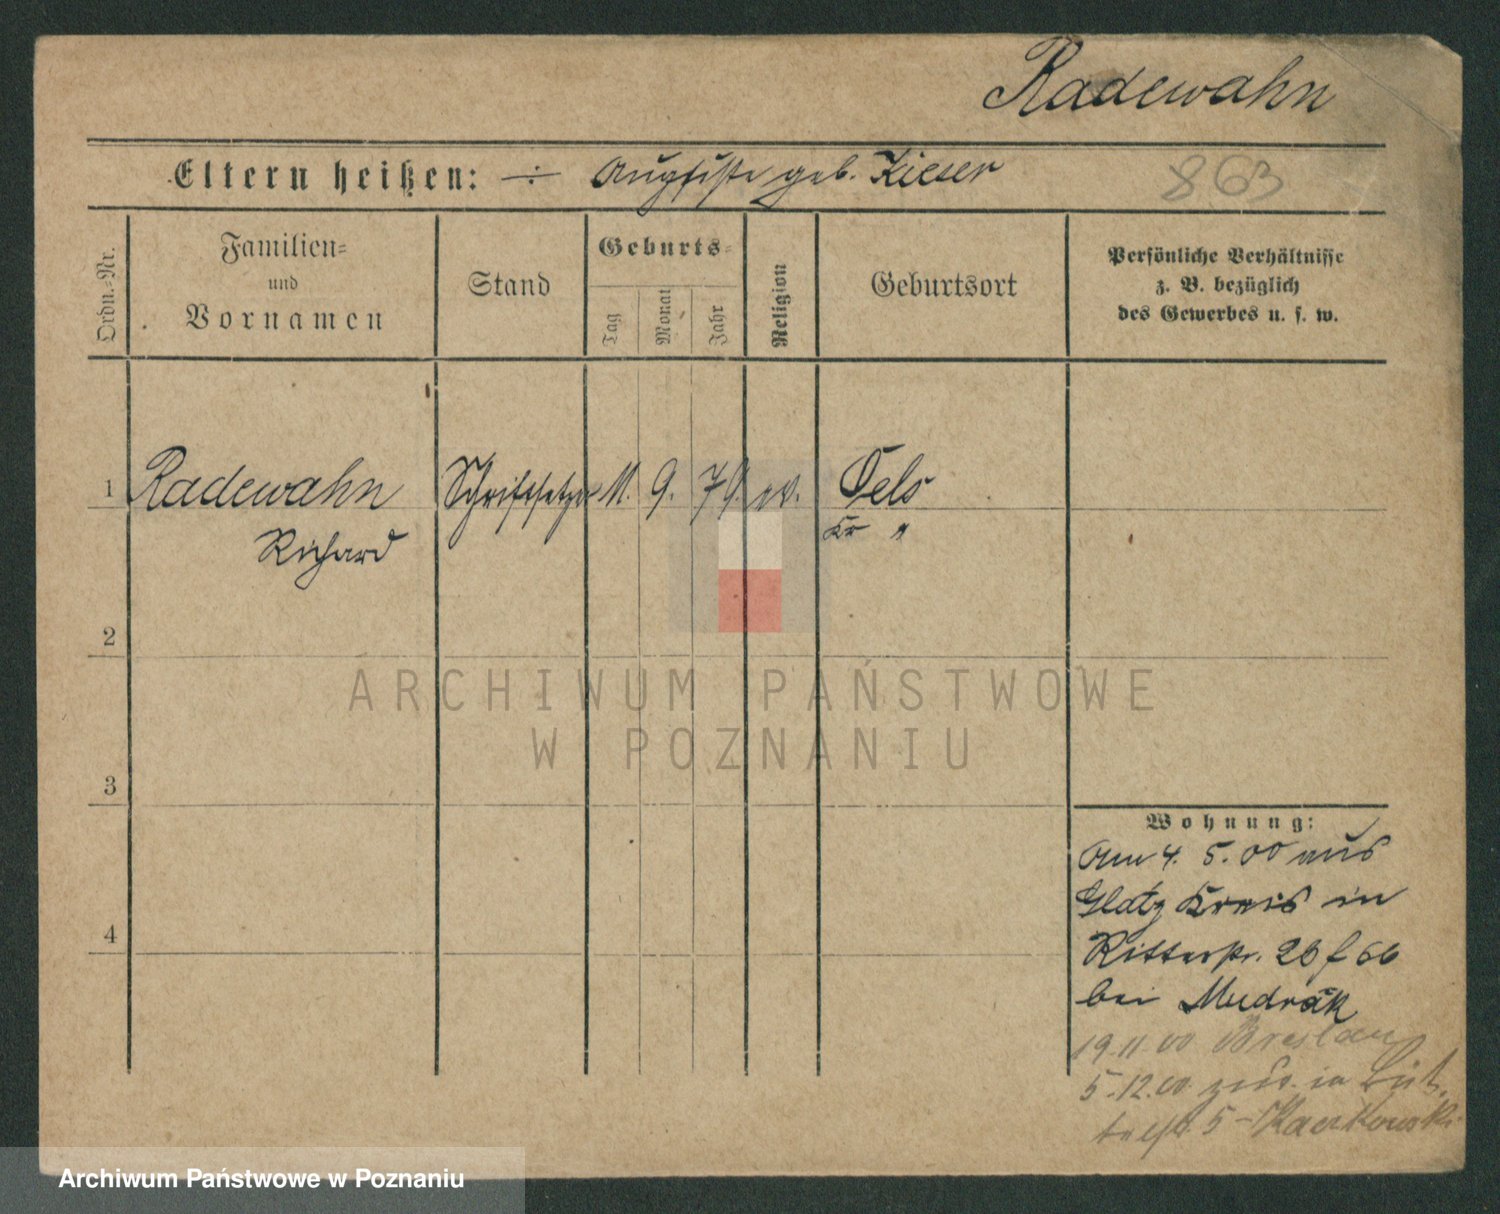 Radewahn
Eltern heißen: ÷ Auguste geb. Kieser
863
Ordn.-Nr.
Familien=
und
Vornamen
Stand
Geburts=
Tag
Monat
Jahr
Religion
Geburtsort
Persönliche Verhältnisse
z. B. bezüglich
des Gewerbes u. s. w.
1 Radewahn Schriftsetzer 11. 9. 79. ev. Oels
Richard
Kr "
2
3
4
Wohnung:
Am 4. 5. 00 aus
Glatz Kreis in
Ritterstr. 26
bei Mudrak
19.11.00 Breslau
5.12.00 zur. in
5 - Kaczkowski
ARCHIWUM PAŃSTWOWE
W POZNANIU
Archiwum Państwowe w Poznaniu